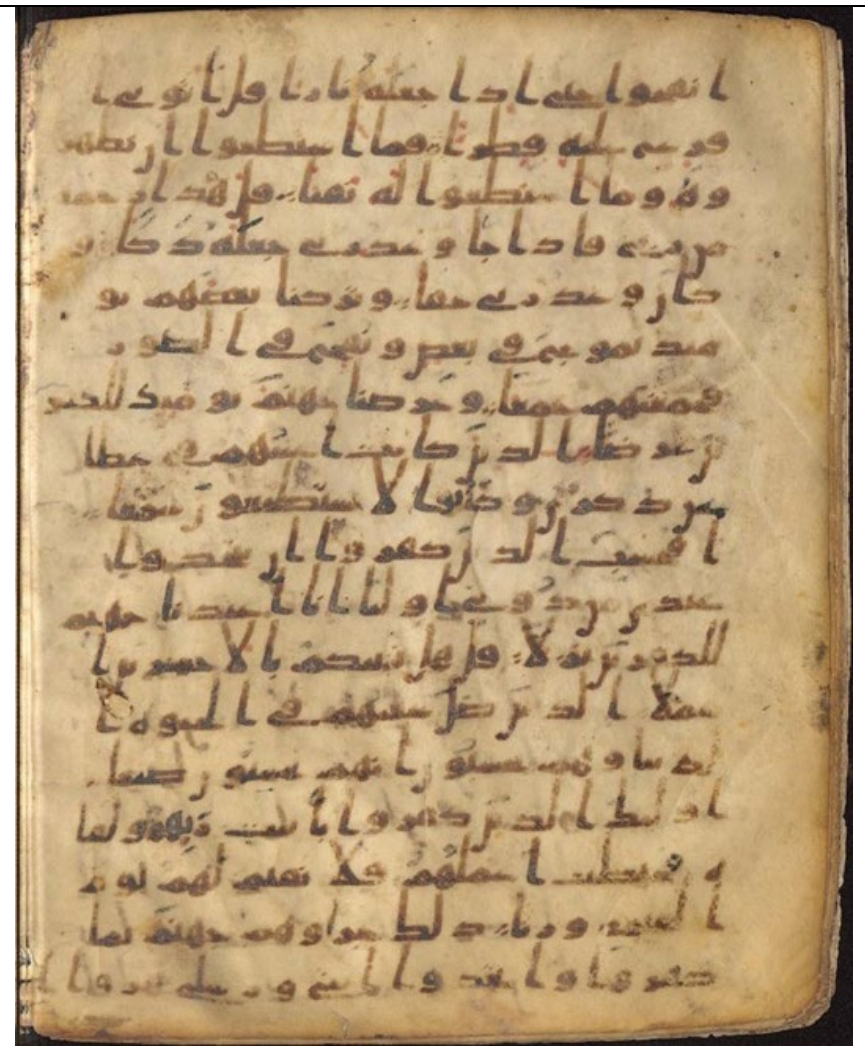 ا نفخوا حتى اذا جعله نارا قل اتونى ا
فرغ عليه قطرا فما اسطعوا ان يظهر
وه وما استطعوا له نقبا قل هذا رحمه
من ربى فاذا جا وعد ربى جعله دكا و
كان وعد ربى حقا وتركنا بعضهم يو
ميذ يموج فى بعض ونفخ فى الصور
فجمعنهم جمعا وعرضنا جهنم يوميذ للكفر
ين عرضا الذين كانت اعينهم فى غطا
عن ذكرى وكانوا لا يستطيعون سمعا
ا فحسب الذين كفروا ان يتخذوا
عبدى من دونى اوليا انا اعتدنا جهنم
للكفرين نزلا قل هل ننبيكم بالاخسرين ا
عملا الذين ضل سعيهم فى الحيوه ا
لدنيا وهم يحسبون انهم يحسنون صنعا
اوليك الذين كفروا بايت ربهم ولقا
يه فحبطت اعملهم فلا نقيم لهم يوم
القيمه وزنا ذلك جزاوهم جهنم بما
كفروا واتخذوا ايتى ورسلى هزوا ا